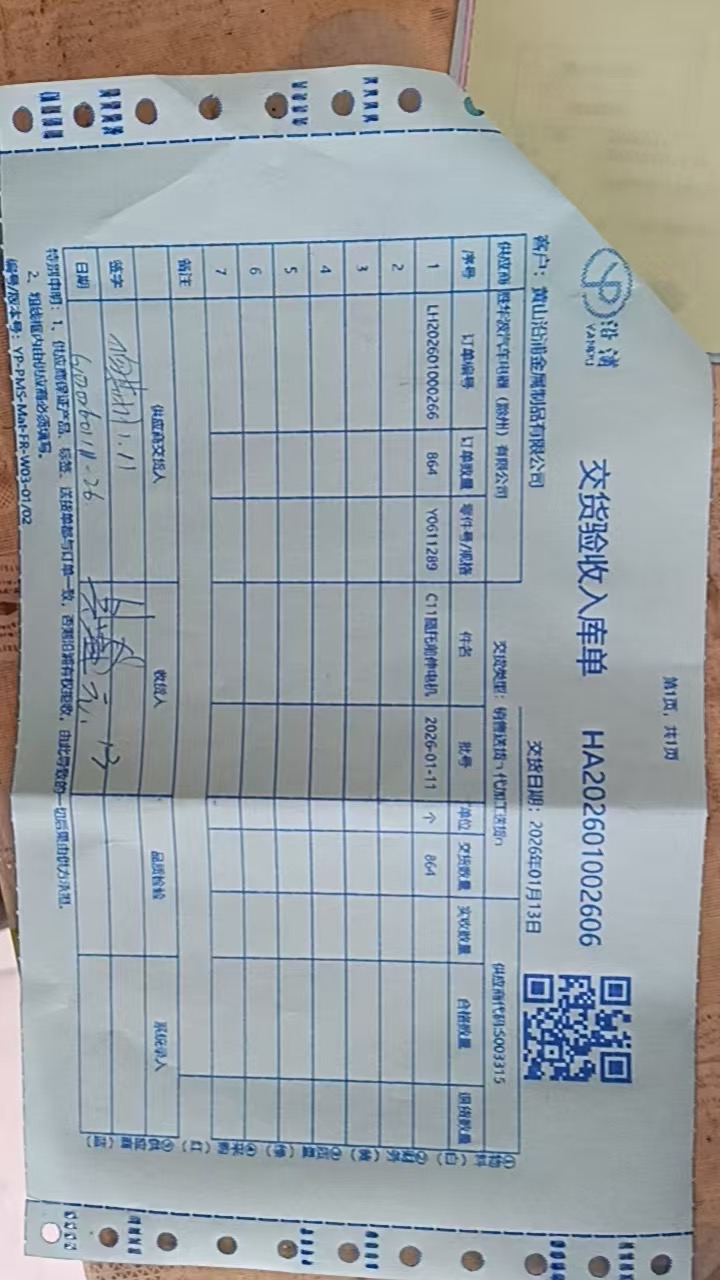 沿浦
YANPU
交货验收入库单 HA202601002606
第1页，共1页
客户：黄山沿浦金属制品有限公司
交货日期：2026年01月13日
供应商 胜华波汽车电器（滁州）有限公司 交货类型：销售送货 代加工送货 供应商代码:S003315
序号 订单编号 订单数量 零件号/规格 件名 批号 单位 交货数量 实收数量 合格数量 退货数量
1 LH202601000266 864 Y0611289 电机 2026-01-11 个 864
2
3
4
5
6
7
备注
供应商交货人 收货人 品质检验 系统录入
签字
日期
特别申明：1、供应商保证产品、标签、送货单都与订单一致，否则沿浦有权拒收，由此导致的一切后果由供方承担。
2、粗线框内由供应商必须填写。
编号/版本号：YP-PMS-Mat-FR-W03-01/02
①物料（白） ②财务（黄） ③质量 ④采购（红） ⑤供应商（蓝）